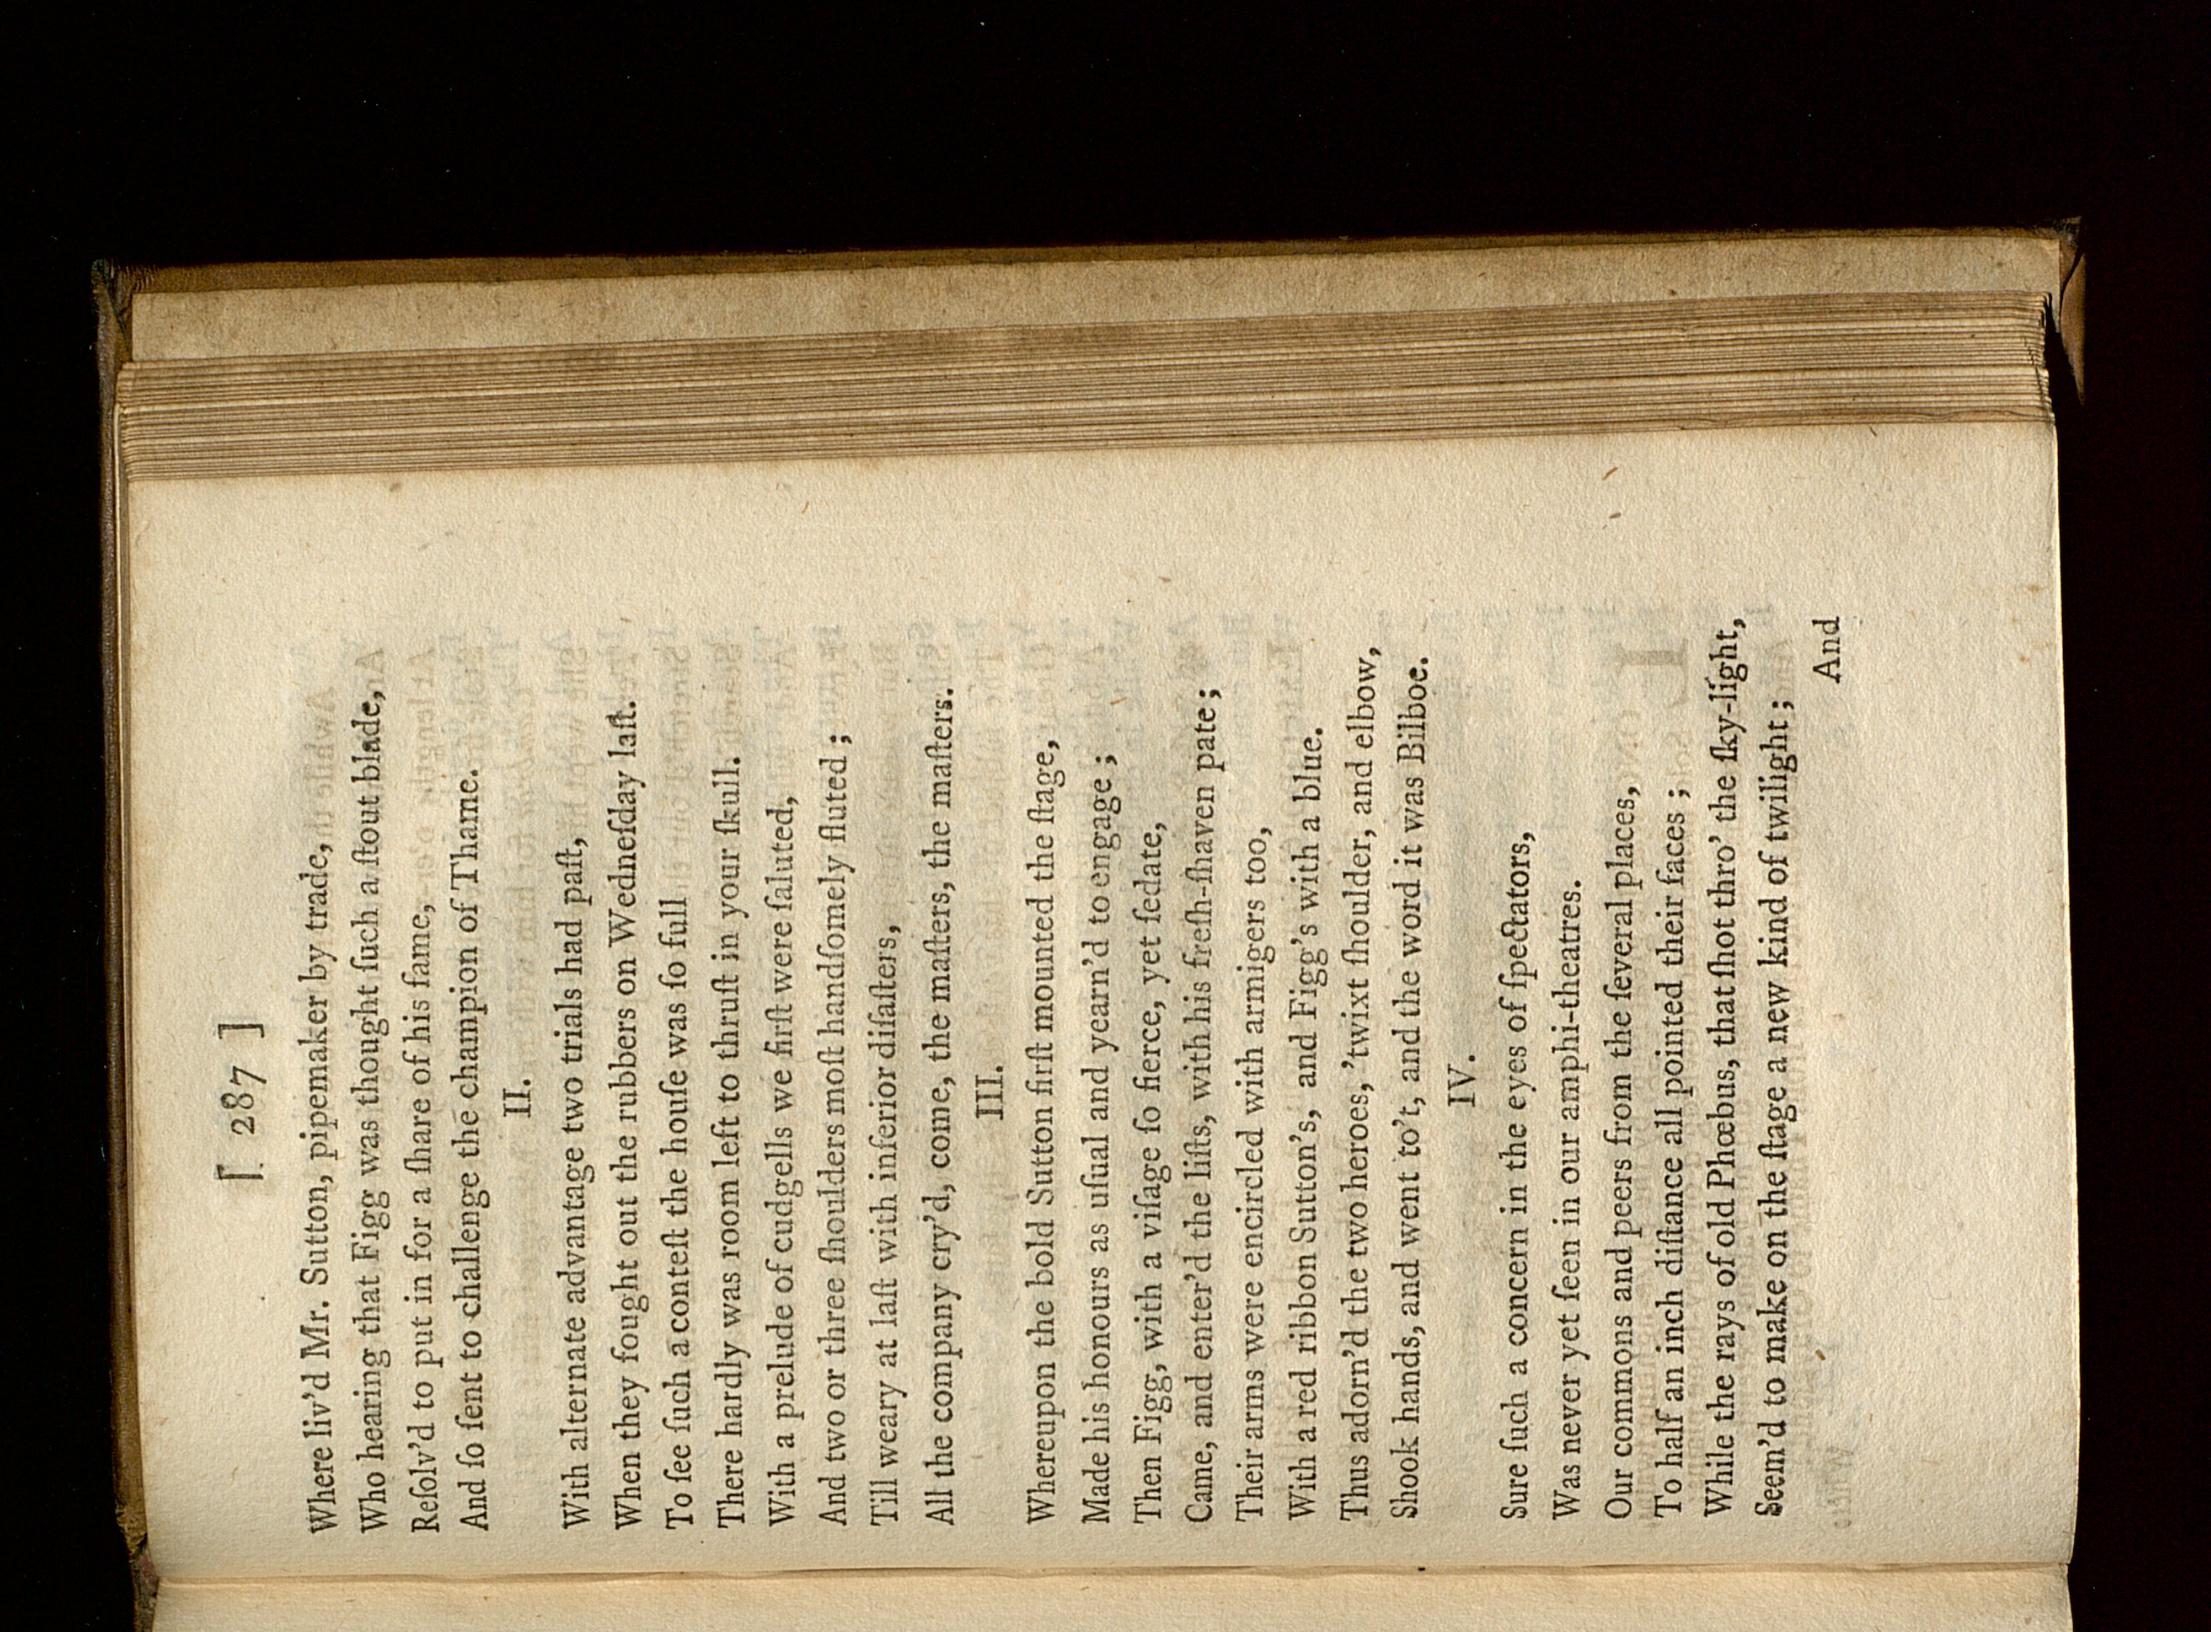 [ 287 ]
Where liv'd Mr. Sutton, pipemaker by trade,
Who hearing that Figg was thought ſuch a ſtout blade,
Reſolv'd to put in for a ſhare of his fame,
And ſo ſent to challenge the champion of Thame.
II.
With alternate advantage two trials had paſt,
When they fought out the rubbers on Wedneſday laſt.
To ſee ſuch a conteſt the houſe was ſo full
There hardly was room left to thruſt in your ſkull.
With a prelude of cudgells we firſt were ſaluted,
And two or three ſhoulders moſt handſomely fluted;
Till weary at laſt with inferior diſaſters,
All the company cry'd, come, the maſters, the maſters.
III.
Whereupon the bold Sutton firſt mounted the ſtage,
Made his honours as uſual and yearn'd to engage;
Then Figg, with a viſage ſo fierce, yet ſedate,
Came, and enter'd the liſts, with his freſh-ſhaven pate;
Their arms were encircled with armigers too,
With a red ribbon Sutton's, and Figg's with a blue.
Thus adorn'd the two heroes, 'twixt ſhoulder, and elbow,
Shook hands, and went to't, and the word it was Bilboe.
IV.
Sure ſuch a concern in the eyes of ſpectators,
Was never yet ſeen in our amphi-theatres.
Our commons and peers from the ſeveral places,
To half an inch diſtance all pointed their faces;
While the rays of old Phœbus, that ſhot thro' the ſky-light,
Seem'd to make on the ſtage a new kind of twilight;
And